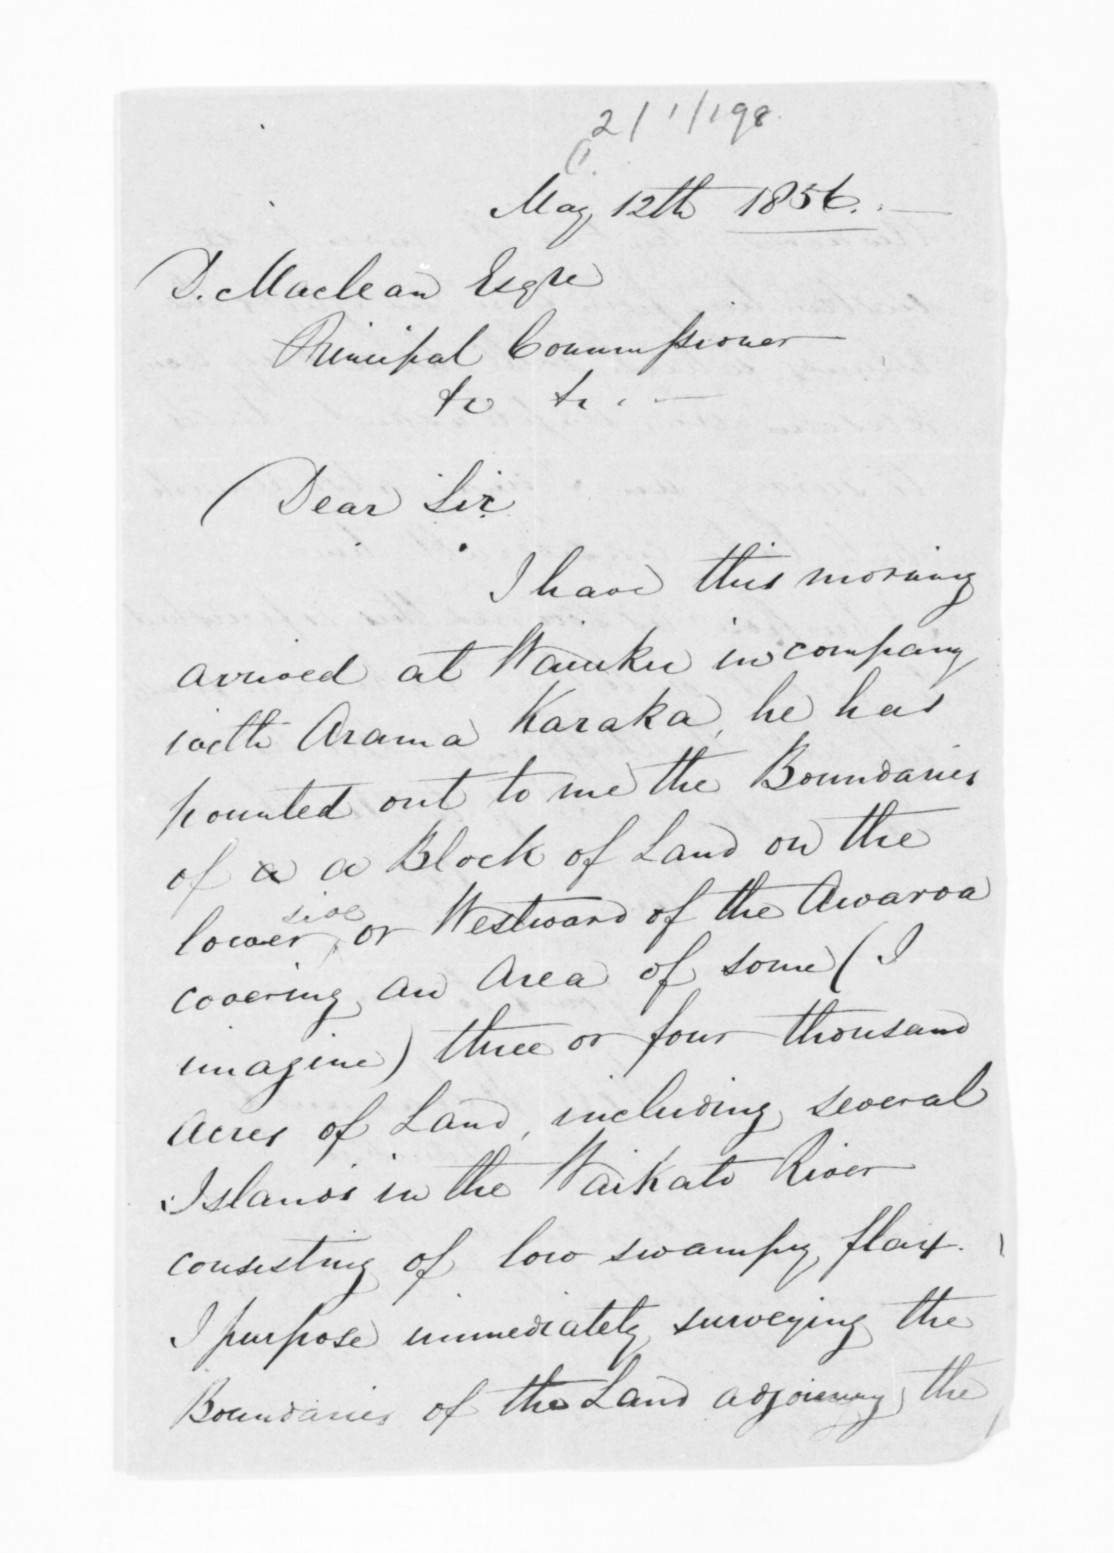 2/1/198
May 12th 1856.
D. Maclean Esqre
Principal Commissioner
&c &c. —
Dear Sir
I have this morning
arrived at Waiuku in company
with Arama Karaka, he has
pointed out to me the Boundaries
of a a Block of Land on the
side
lower, or Westward of the Awaroa
covering an Area of some (I
imagine) three or four thousand
Acres of Land, including several
Islands in the Waikato River
consisting of low swampy flax.
I purpose immediately surveying the
Boundaries of the Land adjoining the